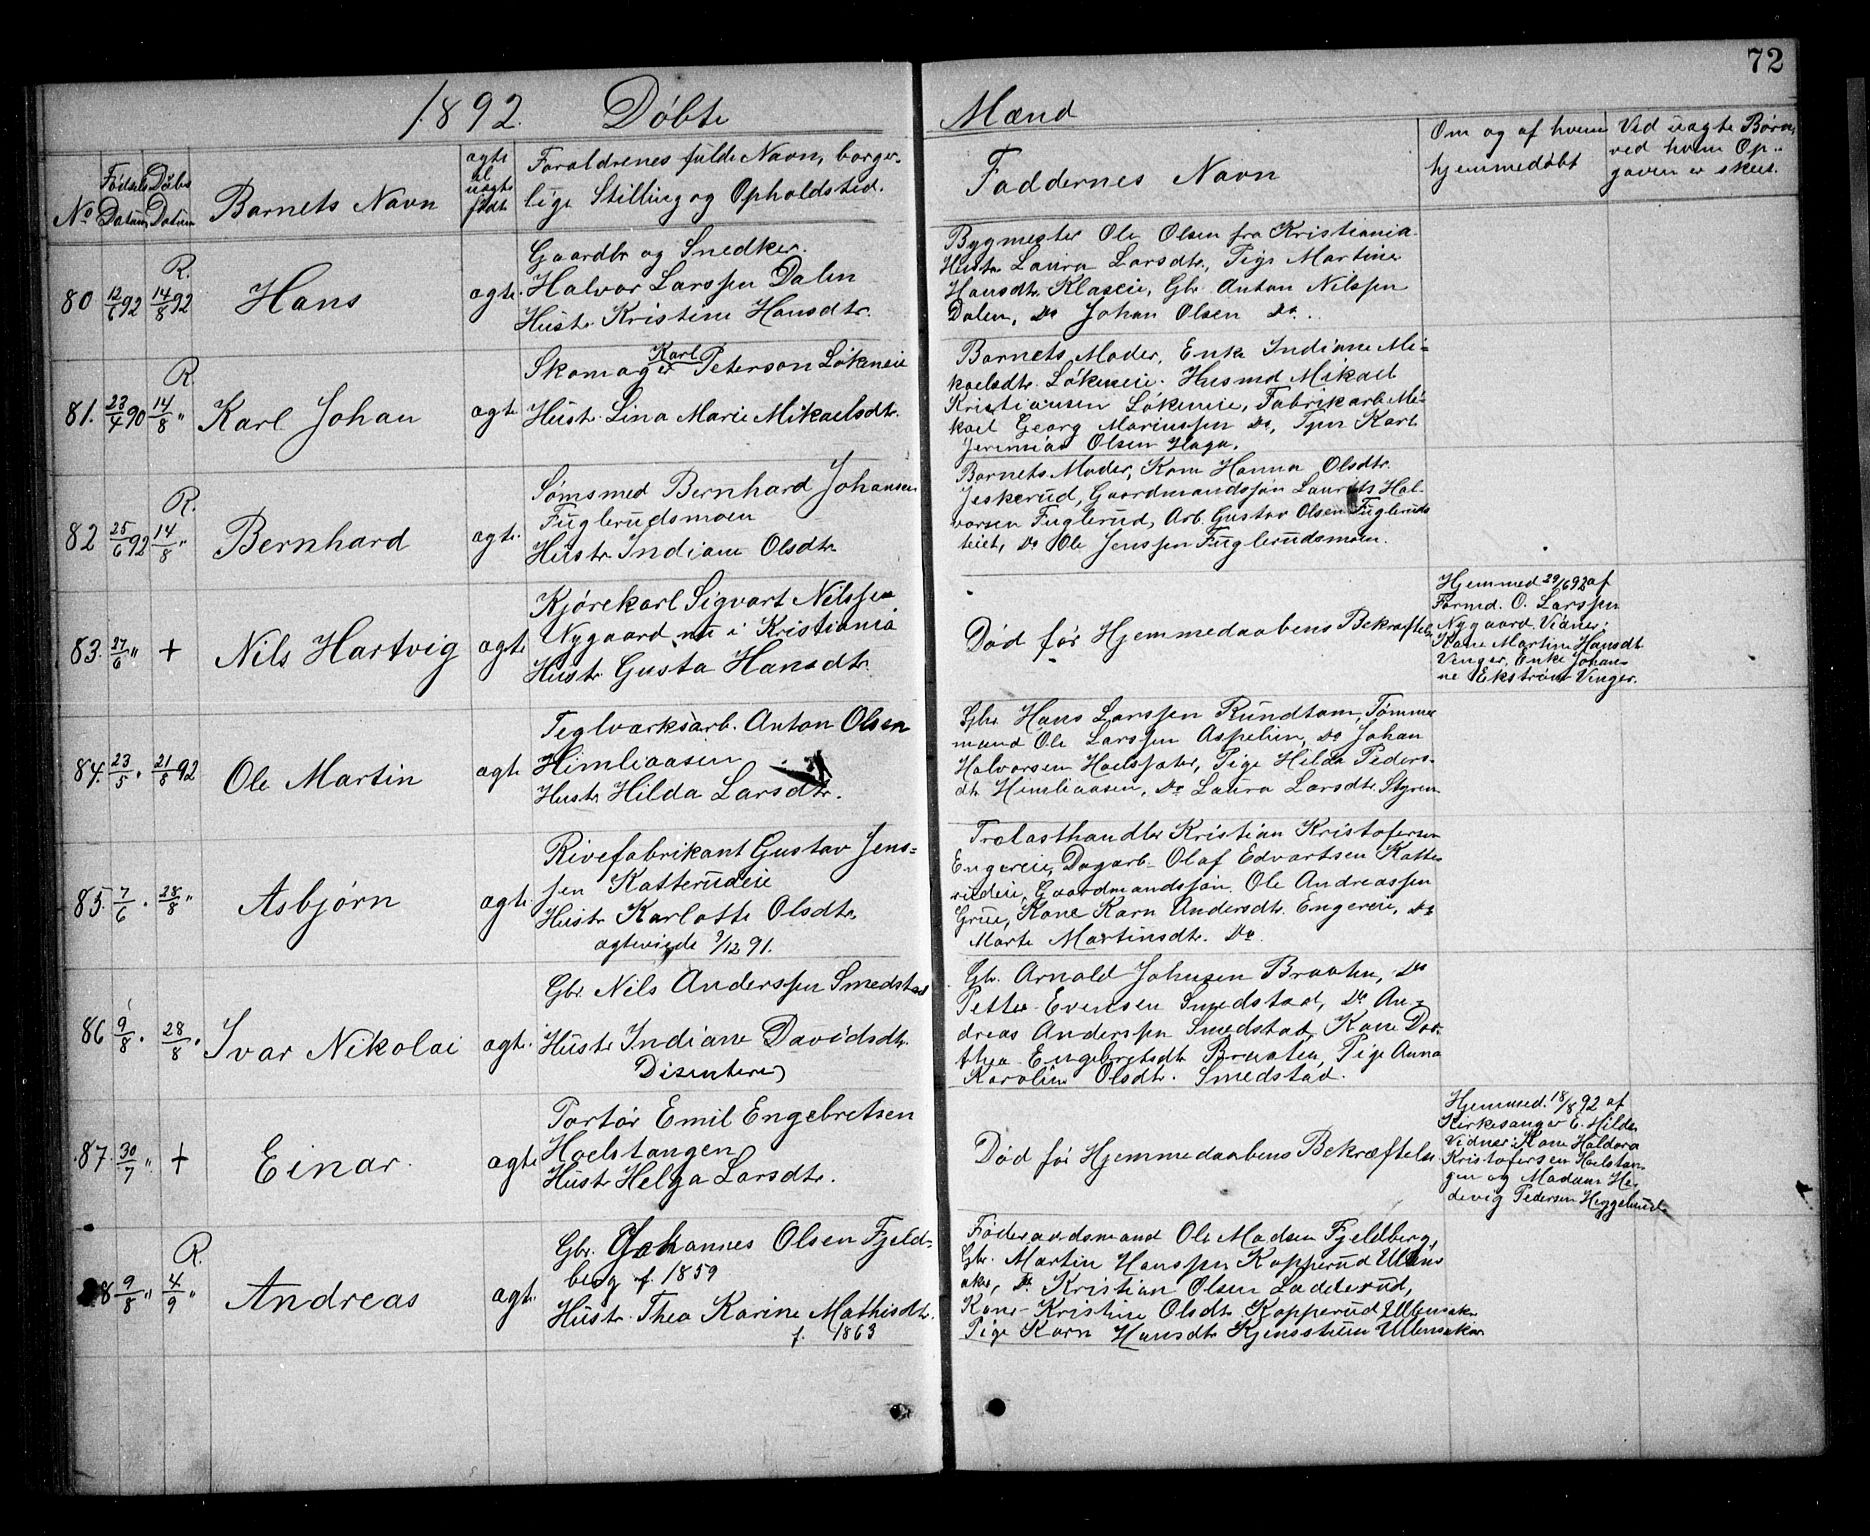 72
1892. Døbte Mænd
No
Fødsels Datum
Døbs Datum
Barnets Navn
ægte el. uægte født
Forældrenes fulde Navn, borger-
lige Stilling og Opholdsted.
Faddernes Navn
Om og af hvem
hjemmedøbt
Ved uægte Børn,
ved hvem Op-
gaven er skeet.
80 12/6 92 R. 14/8 92 Hans ægte.
Gaardbr og Snedker.
Halvor Larssen Dalen
Hustr. Kristine Hansdtr.
Bygmester Ole Olsen fra Kristiania
Hustr Laura Larsdtr, Pige Martine
Hansdtr. Klaseie, Gbr. Anton Nilssen
Dalen, Do Johan Olsen Do.
81. 23/4 90 R. 14/8 " Karl Johan ægte
Skomager Karl Peterson Løkeneie
Hustr. Lina Marie Mikaelsdtr.
Barnets Moder, Enke Indiane Mi-
kaelsdtr. Løkeneie. Husmd Mikael
Kristiansen Løkeneie, Fabrikarb. Mi-
kael Georg Mariussen Do, Tjen Karl
Jeremias Olsen Haga.
82 25/6 92 R. 14/8 " Bernhard ægte.
Sømsmed Bernhard Johansen
Fuglerudsmoen
Hustr. Indiane Olsdtr.
Barnets Moder, Kone Hanna Olsdtr.
Jeskerud, Gaardmandssøn Laurits Hal-
vorsen Fuglerud, Arb. Gustav Olsen Fuglerud
eiet, Do Ole Jenssen Fuglerudsmoen.
83. 27/6 " + Nils Hartvig ægte
Kjørekarl Sigvart Nilssen
Nygaard nu i Kristiania
Hustr. Gusta Hansdtr.
Død før Hjemmedaabens Bekræftelse
Hjemmed 29/6 92 af
Formd. O. Larssen
Nygaard. Vidner:
Kone Martine Hansdtr
Vinger, Enke Johan-
ne Ekstrøm Vinger.
84. 23/5 " 21/8 92 Ole Martin ægte
Teglværksarb. Anton Olsen
Himliaasen
Hustr. Hilda Larsdtr.
Gbr. Hans Larssen Rundtom, Tømmer
mand Ole Larssen Aspelien, Do Johan
Halvorsen Hoelssæter, Pige Hilda Peders-
dtr Himliaasen, Do Laura Larsdtr. Styren
85. 7/6 " 28/8 " Asbjørn ægte
Rivefabrikant Gustav Jens-
sen Katterudeie
Hustr. Karlotte Olsdtr.
ægteviede /12 91.
Trælasthandler Kristian Kristofersen
Engereie, Dagarb. Olaf Edvartsen Katte-
rudeie, Gaardmandssøn Ole Andreassen
Grue, Kone Karn Andersdtr. Engereie, Do
Marte Martinsdtr. Do
86 9/8 " 28/8 " Ivar Nikolai ægte.
Gbr. Nils Anderssen Smedstad
Hustr Indiane Davidsdtr.
Disentere
Gbr. Arnold Johnsen Braaten, Do
Petter Evensen Smedstad, Do An-
dreas Anderssen Smedstad, Kone Doro-
thea Engebretsdtr Braaten, Pige Anna
Karoline Olsdtr. Smedstad.
87. 30/7 " + Einar. ægte
Portør Emil Engebretsen
Hoelstangen
Hustr Helga Larsdtr.
Død før Hjemmedaabens Bekræftelse
Hjemmed. 18/8 92 af
Kirkesanger E. Hilde
Vidner: Kone Haldora
Kristofersen Hoelstan-
gen og Madam He-
devig Pedersen Heggelund
88 9/8 " R. 4/9 " Andreas ægte.
Gbr. Johannes Olsen Fjeld-
berg f. 1859
Hustr. Thea Karine Mathisdtr.
f. 1863
Føderaadsmand Ole Madsen Fjeldberg,
Gbr. Martin Hanssen Kopperud Ullens
aker, Do Kristian Olsen Ladderud,
Kone Kristine Olsdtr Kopperud Ullensaker
Pige Karn Hansdtr Kjensstuen Ullensaker